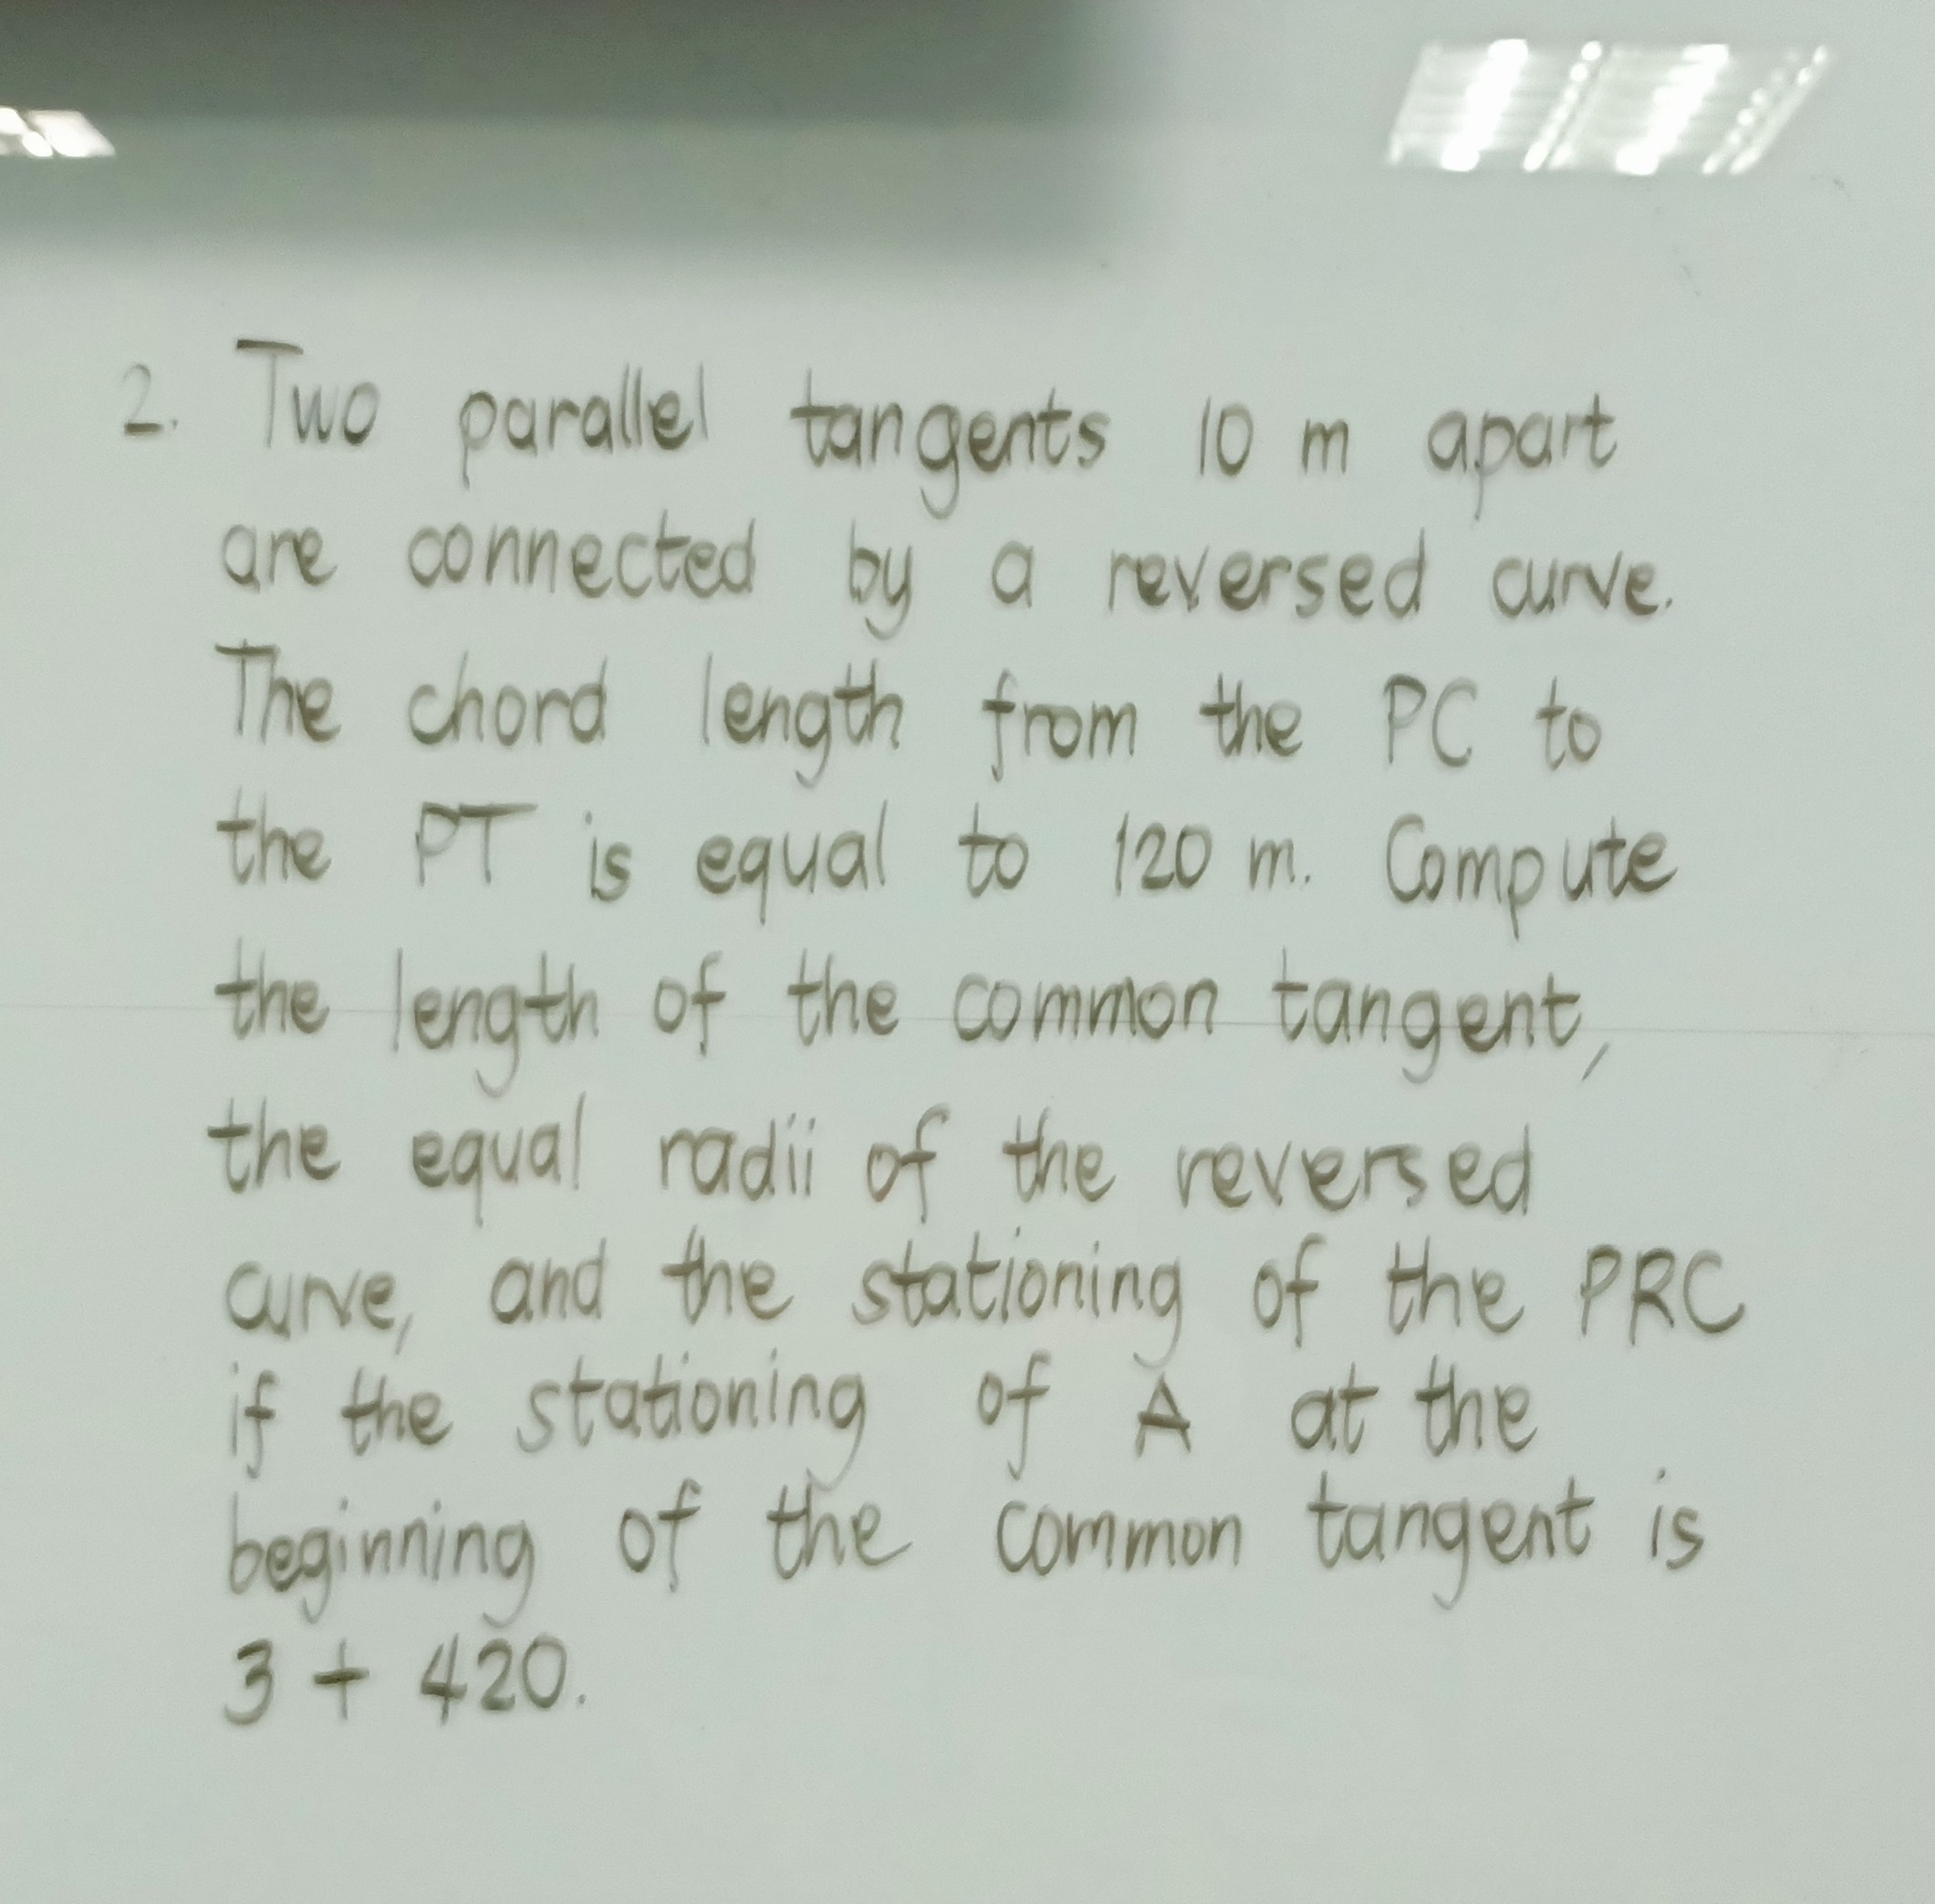 2. Two parallel tangents 10 m apart
are connected by a reversed curve.
The chord length from the PC to
the PT is equal to 120 m. Compute
the length of the common tangent,
the equal radii of the reversed
curve, and the stationing of the PRC
if the stationing of A at the
beginning of the common tangent is
3 + 420.